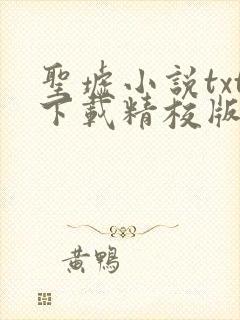 聖墟小說txt
下載精校版
黃鴨